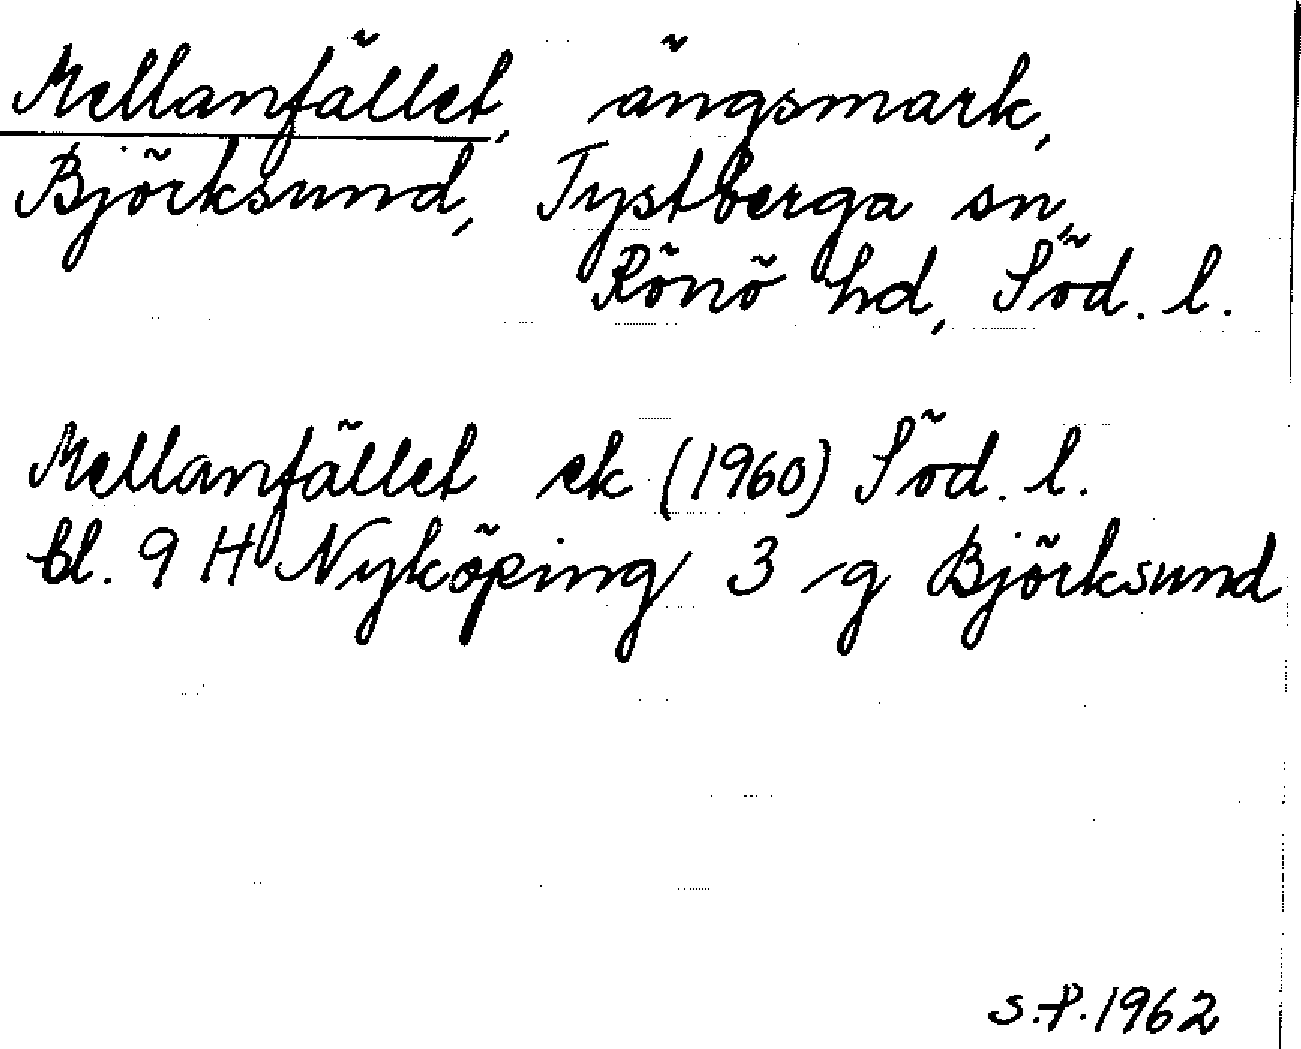 Mellanfället, ängsmark,
Björksund, Tystberga sn,
Rönö hd, Söd. l.
Mellanfället ek (1960) Söd. l.
bl. 9 H Nyköping 3 g Björksund
S.P. 1962